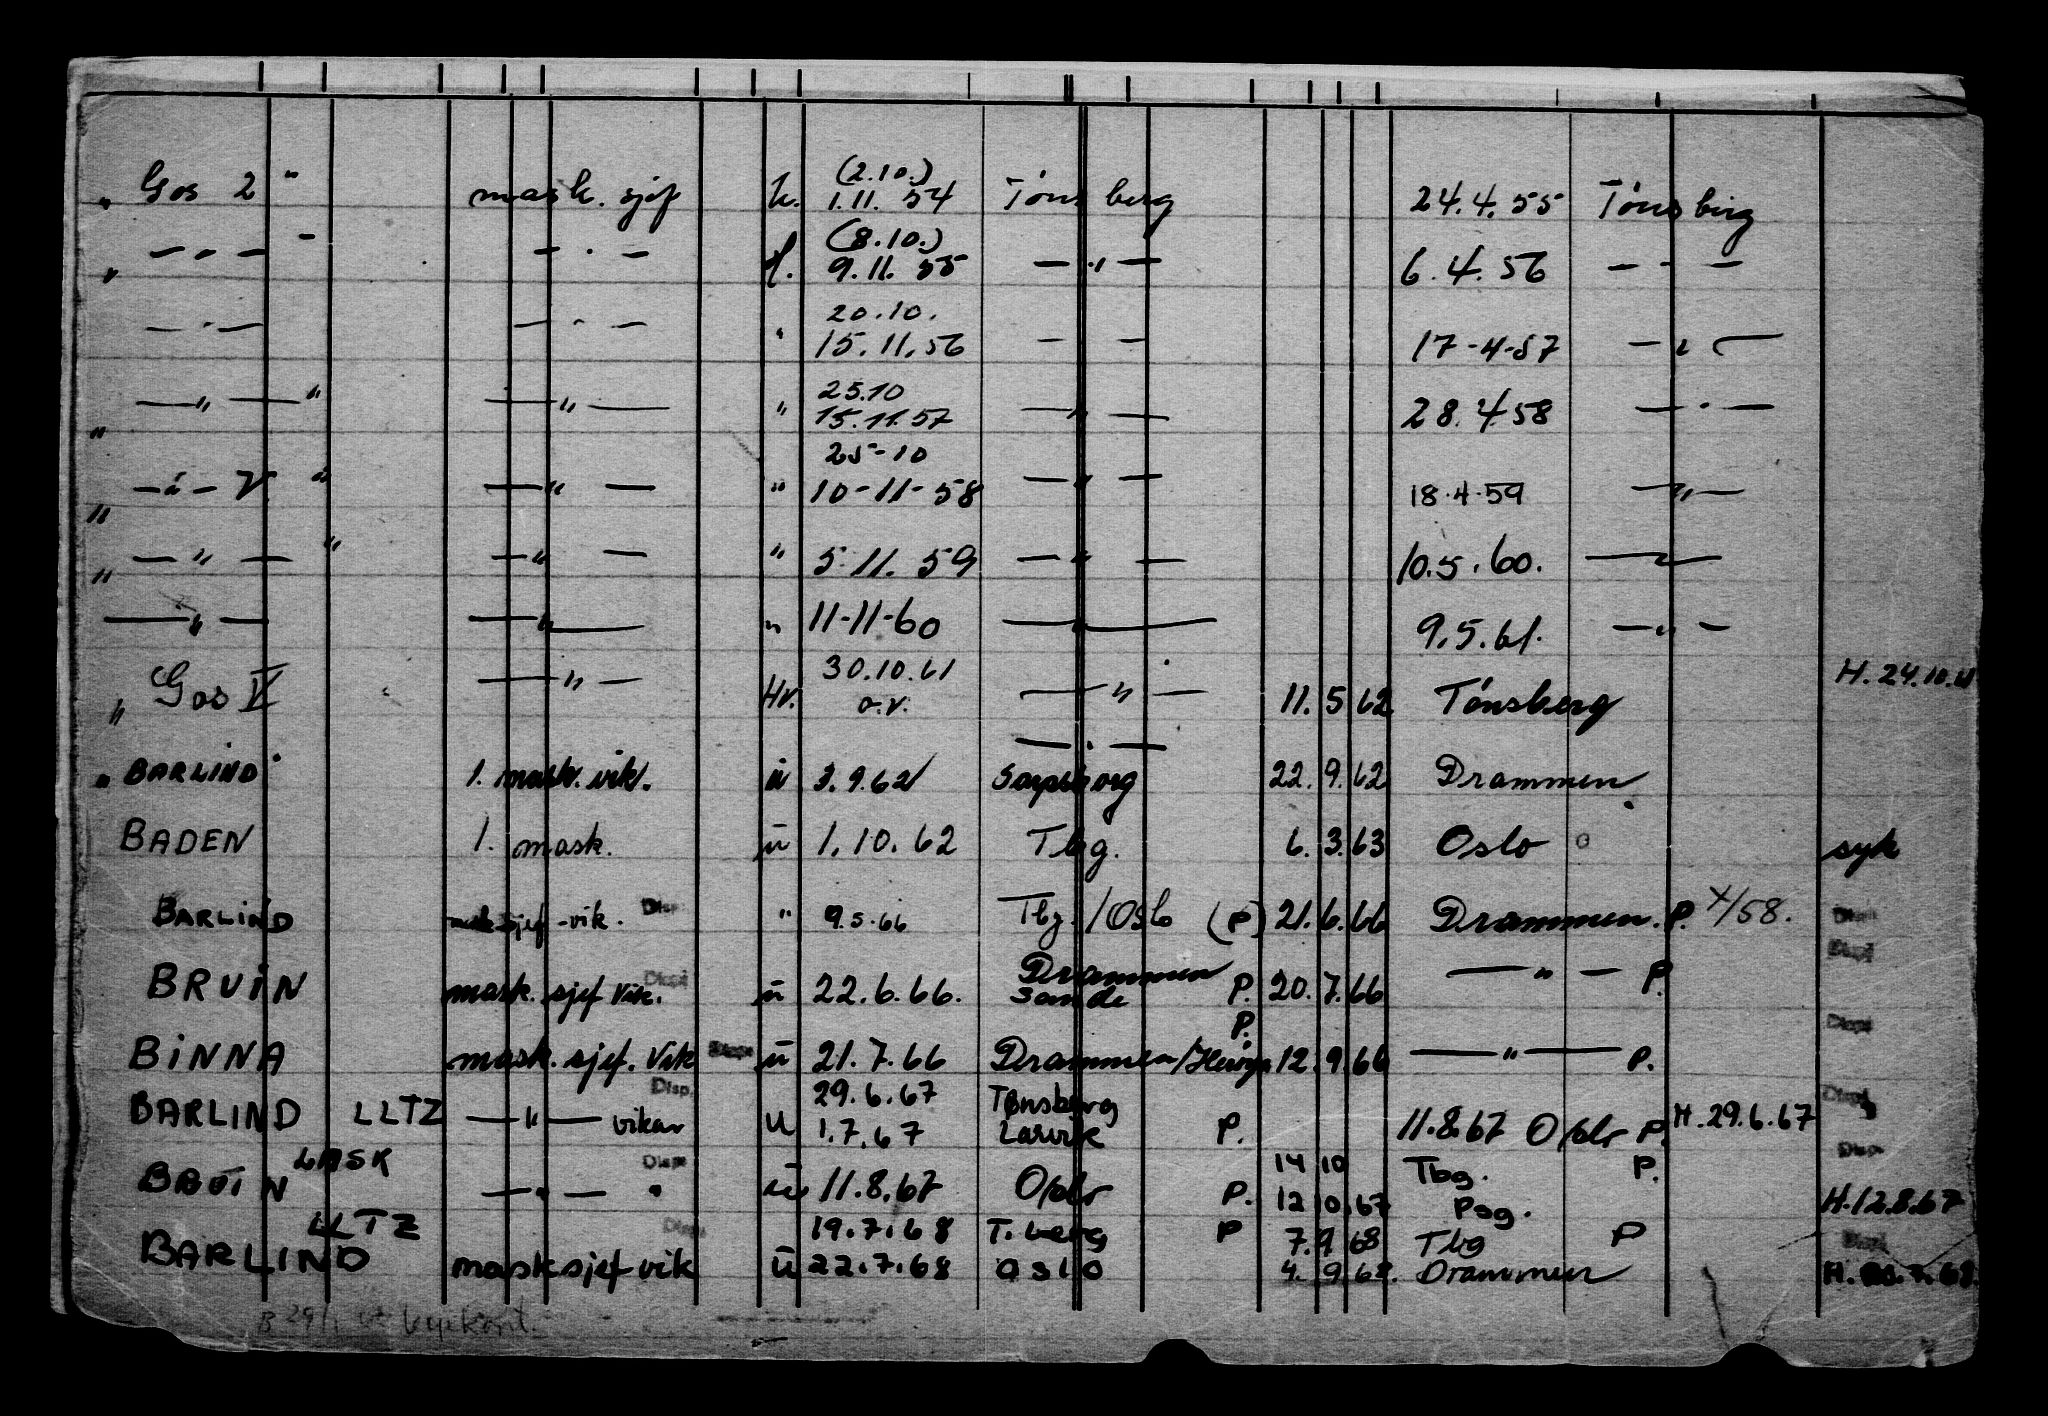 " Gos 2 " mask. sjef h. (2.10.) 1.11. 54 Tønsberg 24.4.55 Tønsberg
" — " — — " — (8.10.) 9.11. 55 — " — 6.4.56 — " —
— " — — " — " 20.10. 15.11.56 — — 17-4-57 — " —
" — " — " — " — " 25.10 15.11.57 — " — 28.4.58 — " —
" — " — V " — " — " 25-10 10-11-58 — " — 18.4.59 — " —
" — " — " — " — " 5.11.59 — " — 10.5.60. — " —
— " — — " — " 11-11-60 — " — 9.5.61. — " —
" Gos V — " — Hv. 30.10.61 o.v. — " — 11.5 62 Tønsberg H. 24.10.61
— " —
" BARLIND " 1. mask. vik. ü 3.9.62 Sarpsborg 22.9.62 Drammen
BADEN 1. mask. ü 1.10.62 Tbg. 6.3.63 Oslo syk
BARLIND mask sjef -vik. Disp. " 9.5.66 Tbg. / Oslo (P) 21.6.66 Drammen. P. X/58. Disp
BRUIN mask. sjef vik. Disp ü 22.6.66. Drammen Sande P. 20.7.66 — " — P. Disp
BINNA mask. sjef. vik Disp ü 21.7.66 Drammen / P. 12.9.66 — " — P. Disp
BARLIND LLTZ — " — vikar Disp. u 29.6.67 1.7.67 Tønsberg Larvik P. 11.8.67 Oslo P. H. 29.6.67 Disp
LASK — " — " Disp ü 11.8.67 Oslo P. 14 10 Tbg. P. Disp
12 10.67 Psg. H. 12.8.67
LLTZ 19.7.68 T.berg P 7.9 68 Tbg P Disp
BARLIND mask sjef vik ü 22.7.68 Oslo 4. 9 68. Drammen